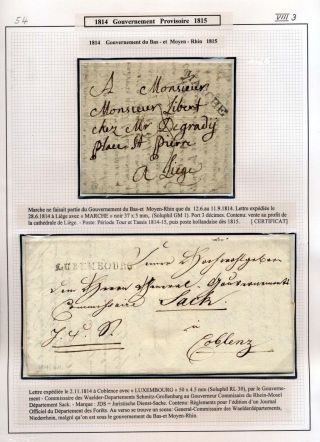 54
1814 Gouvernement Provisoire 1815
VIII 3
1814 Gouvernement du Bas - et Moyen - Rhin 1815
MARCHE
A Monsieur
Monsieur Libert
chez Mr Degrady
place St Pierre
A Liége
Marche ne faisait partie du Gouvernement du Bas-et Moyen-Rhin que du 12.6 au 11.9.1814. Lettre expédiée le
28.6.1814 à Liège avec « MARCHE » noir 37 x 5 mm, (Soluphil GM 1). Port 3 décimes. Contenu: vente au profit de
la cathédrale de Liège. - Poste: Période Tour et Tassis 1814-15, puis poste hollandaise dès 1815. [ CERTIFICAT]
LUXEMBOURG
Seiner Hochwohlgeboren
dem Herrn General Gouvernements
Commissaire Sack
J. d. S.
Coblenz
Lettre expédiée le 2.11.1814 à Coblence avec « LUXEMBOURG » 50 x 4.5 mm (Soluphil RL 30), par le Gouverne-
ment - Commissaire des Waelder-Departements Schmitz-Großenburg au Gouverneur Commissaire du Rhein-Mosel
Département Sack. - Marque : JDS = Juristische Dienst-Sache. Contenu: Règlements pour l'édition d'un Journal
Officiel du Département des Forêts. Au verso se trouve un sceau: General-Commissaire des Waelderdepartements,
Niederrhein, malgré qu'on est sous gouvernement du Bas-et-Moyen-Rhin.